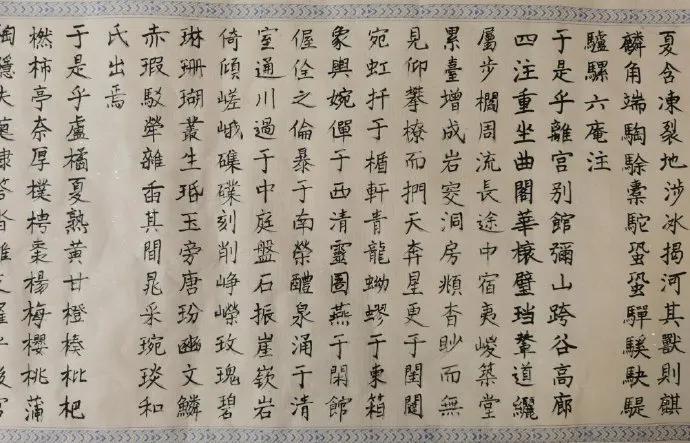 夏含凍裂地涉冰揭河其獸則麒
麟角端騊駼橐駝蛩蛩驒騱駃騠
驢騾六庵注
于是乎離宫别館彌山跨谷高廊
四注重坐曲閣華榱璧珰輦道纚
屬步櫩周流長途中宿夷嵕築堂
累臺增成岩窔洞房頫杳眇而無
見仰攀橑而捫天奔星更于閨闥
宛虹扦于楯軒青龍蚴蟉于東箱
象輿婉僤于西清靈圄燕于閑館
偓佺之倫暴于南榮醴泉涌于清
室通川過于中庭盤石振崖嶔岩
倚傾嵯峨磼礏刻削崢嶸玫瑰碧
琳珊瑚叢生珉玉旁唐玢豳文鱗
赤瑕駁犖雜臿其間晁采琬琰和
氏出焉
于是乎盧橘夏熟黄甘橙楱枇杷
橪柿亭奈厚樸梬棗楊梅櫻桃蒲
陶隱夫薁棣荅沓離支羅乎後宫